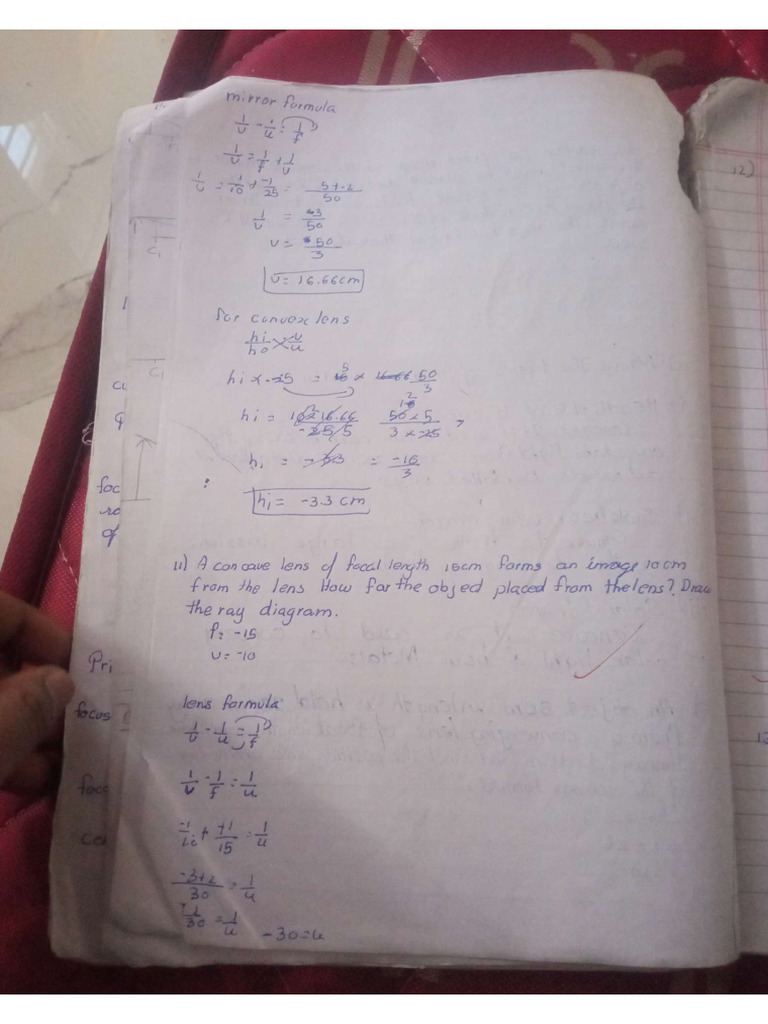 mirror formula
1/v - 1/u = 1/f
1/v = 1/f + 1/u
1/v = 1/10 + -1/25 = 5+-2/50
1/v = 3/50
v = 50/3
v = 16.66cm
For convex lens
hi/ho v/u
hi × -25 = 5 × 50/3
hi = 10×16.66/-25 5 50×5/3×-25
hi = -3.3 = -10/3
hi = -3.3 cm
11) A concave lens of focal length 15cm forms an image 10cm
from the lens How far the object placed from the lens? Draw
the ray diagram.
f = -15
v = -10
lens formula
1/v - 1/u = 1/f
1/v - 1/f = 1/u
-1/10 + +1/15 = 1/u
-3+2/30 = 1/u
-1/30 = 1/u -30=u
12)
C1
C1
foc
of
Pri
focus